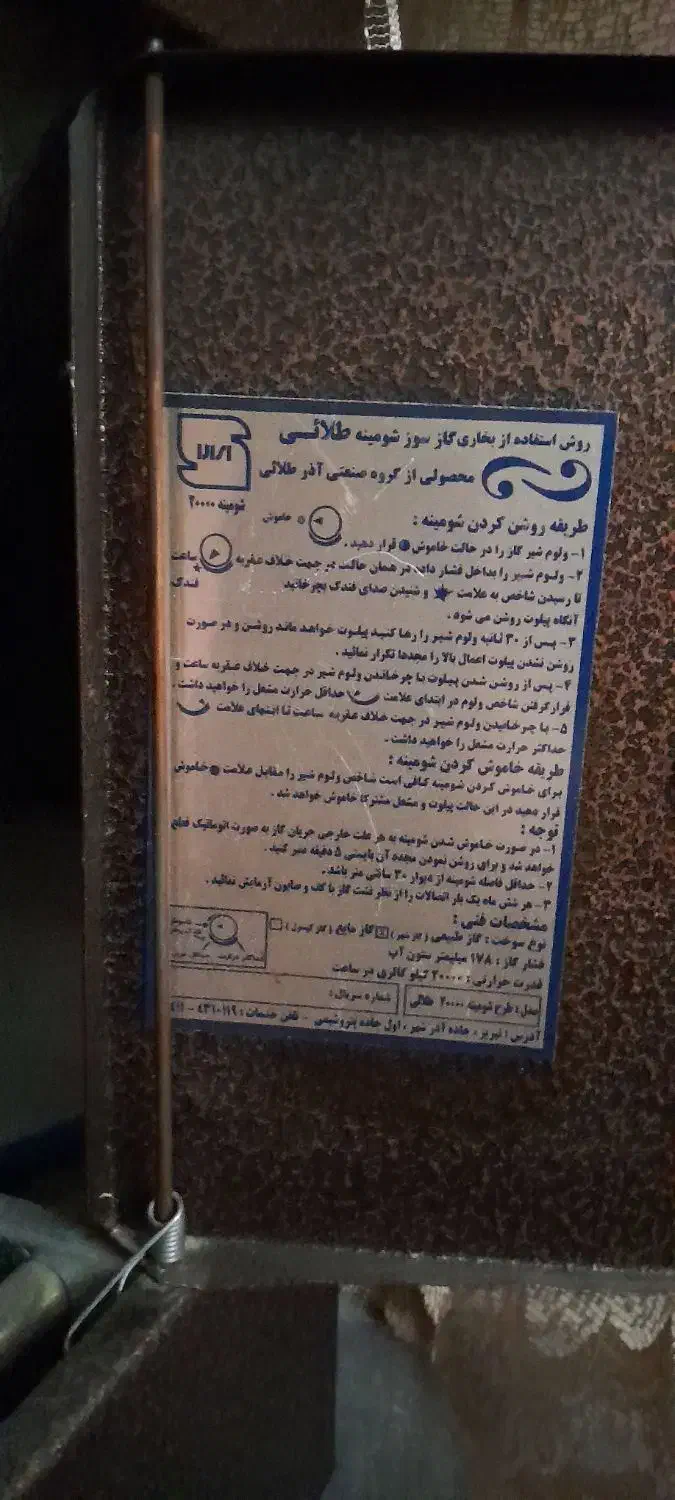 روش استفاده از بخاری گاز سوز شومینه طلائی
محصولی از گروه صنعتی آذر طلائی
شومینه ۲۰۰۰۰
طریقه روشن کردن شومینه :
خاموش
۱- ولوم شیر گاز را در حالت خاموش قرار دهید .
۲- ولوم شیر را بداخل فشار داده در همان حالت در جهت خلاف عقربه ساعت
تا رسیدن شاخص به علامت و شنیدن صدای فندک بچرخانید فندک
آنگاه پیلوت روشن می شود .
۳- پس از ۳۰ ثانیه ولوم شیر را رها کنید پیلوت خواهد ماند روشن و در صورت
روشن نشدن پیلوت اعمال بالا را مجددا تکرار نمائید .
۴- پس از روشن شدن پیلوت با چرخاندن ولوم شیر در جهت خلاف عقربه ساعت و
قرار گرفتن شاخص ولوم در ابتدای علامت حداقل حرارت مشعل را خواهید داشت .
۵- با چرخانیدن ولوم شیر در جهت خلاف عقربه ساعت تا انتهای علامت
حداکثر حرارت مشعل را خواهید داشت .
طریقه خاموش کردن شومینه :
برای خاموش کردن شومینه کافی است شاخص ولوم شیر را مقابل علامت خاموش
قرار دهید در این حالت پیلوت و مشعل مشترکا خاموش خواهد شد .
توجه :
۱- در صورت خاموش شدن شومینه به هر علت خارجی جریان گاز به صورت اتوماتیک قطع
خواهد شد و برای روشن نمودن مجدد آن بایستی ۵ دقیقه صبر کنید .
۲- حداقل فاصله شومینه از دیوار ۳۰ سانتی متر باشد .
۳- هر شش ماه یک بار اتصالات را از نظر نشت گاز با کف و صابون آزمایش نمائید .
مشخصات فنی :
نوع سوخت : گاز طبیعی ( گاز شهر ) گاز مایع ( گاز کپسول )
فشار گاز : ۱۷۸ میلیمتر ستون آب
قدرت حرارتی : ۲۰۰۰۰ کیلو کالری در ساعت
مدل : طرح شومینه ۲۰۰۰۰ طلائی
شماره سریال :
آدرس : تبریز ، جاده آذر شهر ، اول جاده پتروشیمی - تلفن خدمات : ۴۳۱۰۱۱۹ -